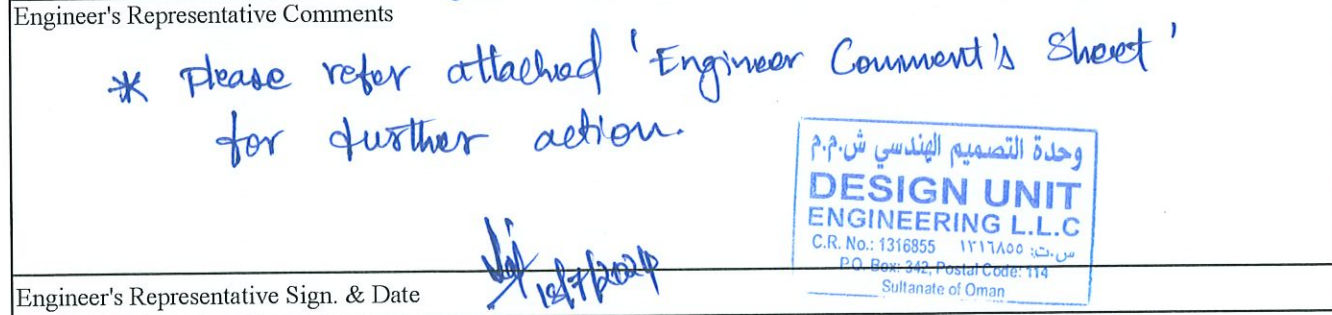 Engineer's Representative Comments
* Please refer attached 'Engineer Comment's Sheet'
for further action.
وحدة التصميم الهندسي ش.م.م
DESIGN UNIT
ENGINEERING L.L.C
C.R. No.: 1316855 س.ت: ١٣١٦٨٥٥
P.O. Box: 342, Postal Code: 114
Sultanate of Oman
Engineer's Representative Sign. & Date